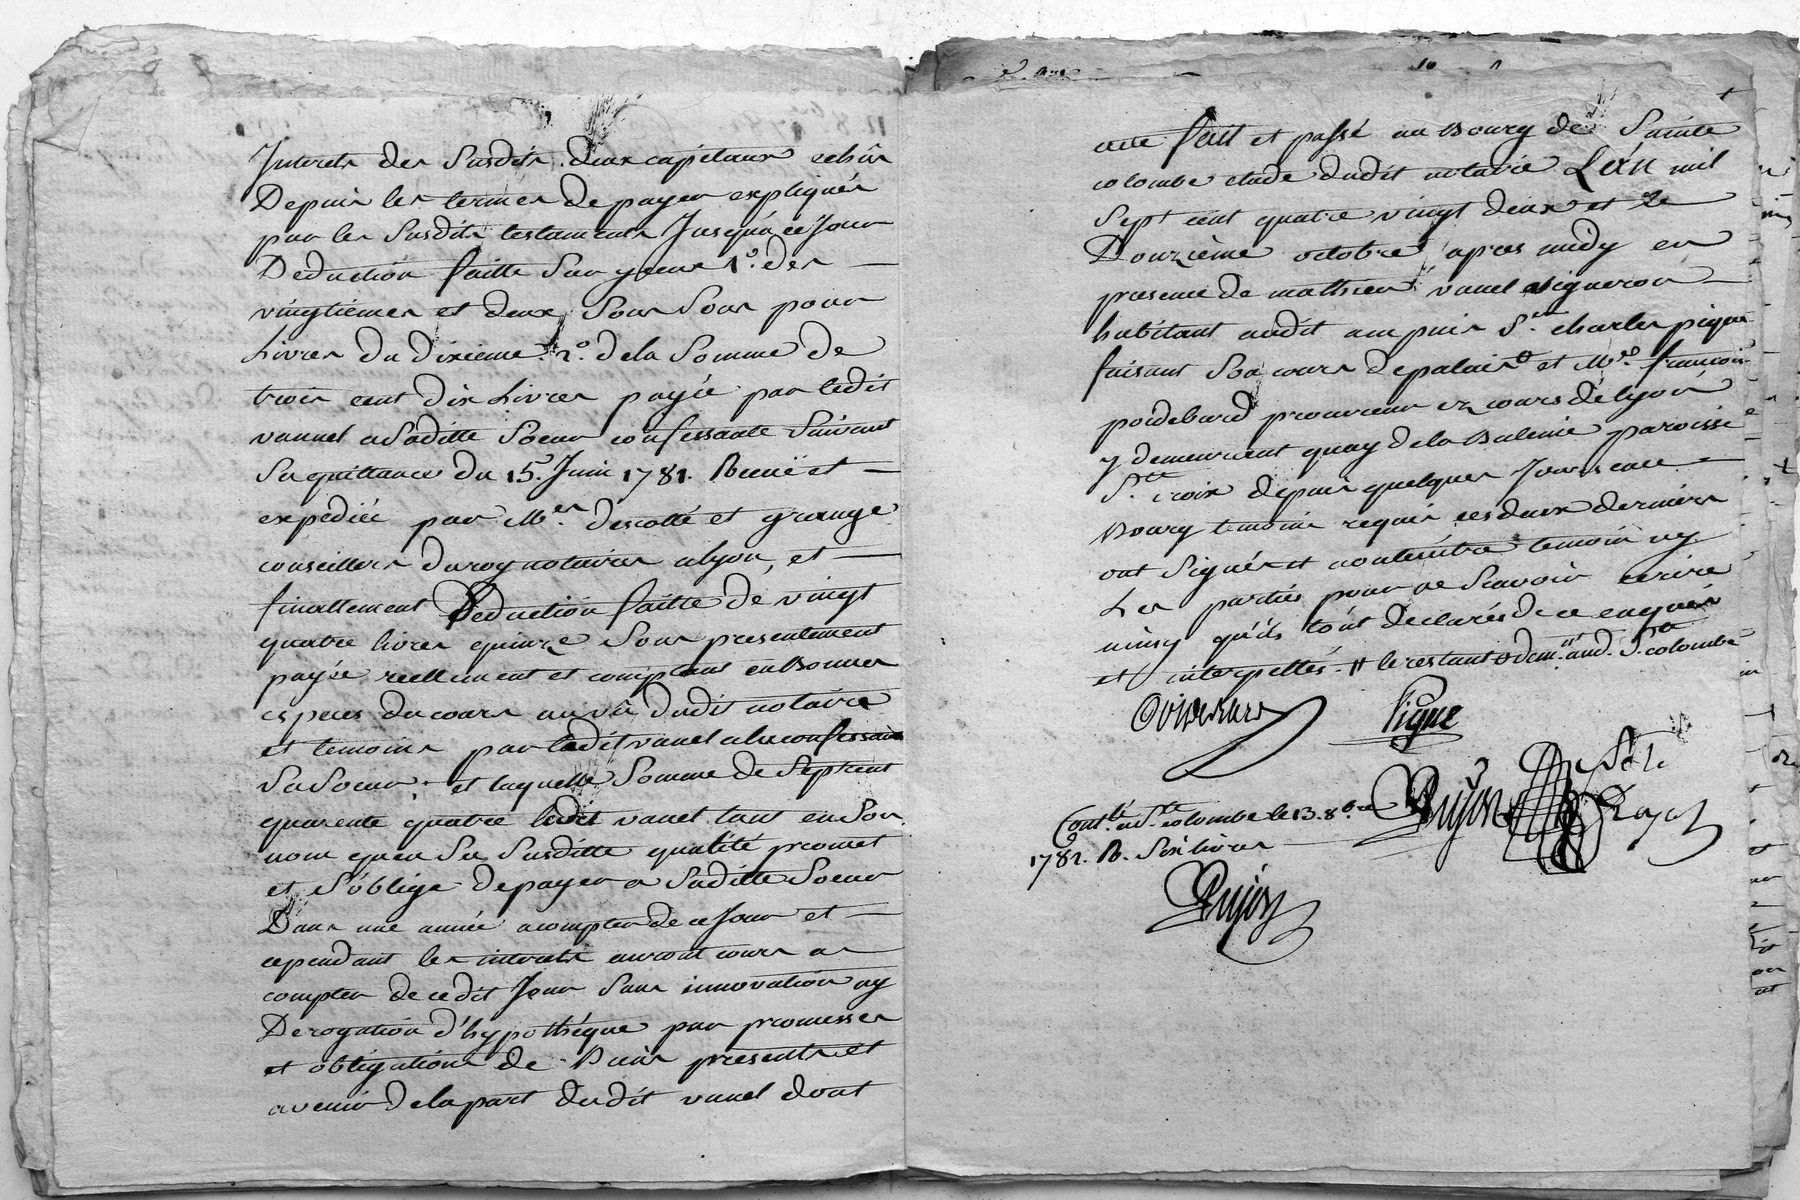 Interets des susdits deux capitaux echûs
Depuis les termes de payer expliqués
par les susdits testaments Jusqu'à ce Jour
Deduction faitte sur yceux 1.° des
vingtiemes et deux sous sous pour
Livres du dixieme. 2.° de la somme de
trois cent dix Livres payée par ledit
vanel a saditte soeur confessante suivant
sa quittance du 15. Juin 1781. Recuë et
expediée par Mes. descotte et grange
conseillers du roy notaires a lyon, et
finallement Deduction faitte de vingt
quatre livres quinze sous presentement
payée reellement et comptant en Bonnes
especes du cours au vû dudit notaire
et temoins par ledit vanel a la confessante
sa soeur. et laquelle somme de sept cent
quarente quatre ledit vanel tant en son
nom qu'en sa susditte qualité promet
et s'oblige de payer a saditte soeur
Dans une année a compter de ce Jour et
cependant les interets auront cours a
compter de cedit Jour sans innovation ny
Derogation d'hypothéque par promesses
et obligations de Biens presents et
avenir de la part dudit vanel dont
acte fait et passé au Bourg de Sainte
colombe etude dudit notaire L'an mil
sept cent quatre vingt deux et le
Douzieme octobre apres midy en
presence de mathieu vanel vigneron
habitant audit ampuis Sr. charles pigue
faisant sa cours de palais et Me. francois
poidebard procureur ez cours de lyon
y demeurant quay de la Baleine paroisse
Ste. croix depuis quelques Jours en ce
Bourg temoins requis ces deux derniers
ont signés et non lesdits temoin ny
Les parties pour ne scavoir ecrire
ainsy qu'ils l'ont declarés de ce enquis
et interpellés. # le restant dem.nt aud. Ste colombe
Poidebard Pigue
Pujon
Cont.lé a Ste. colombe le 13. 8.bre
1782. R. six livres
Pujon